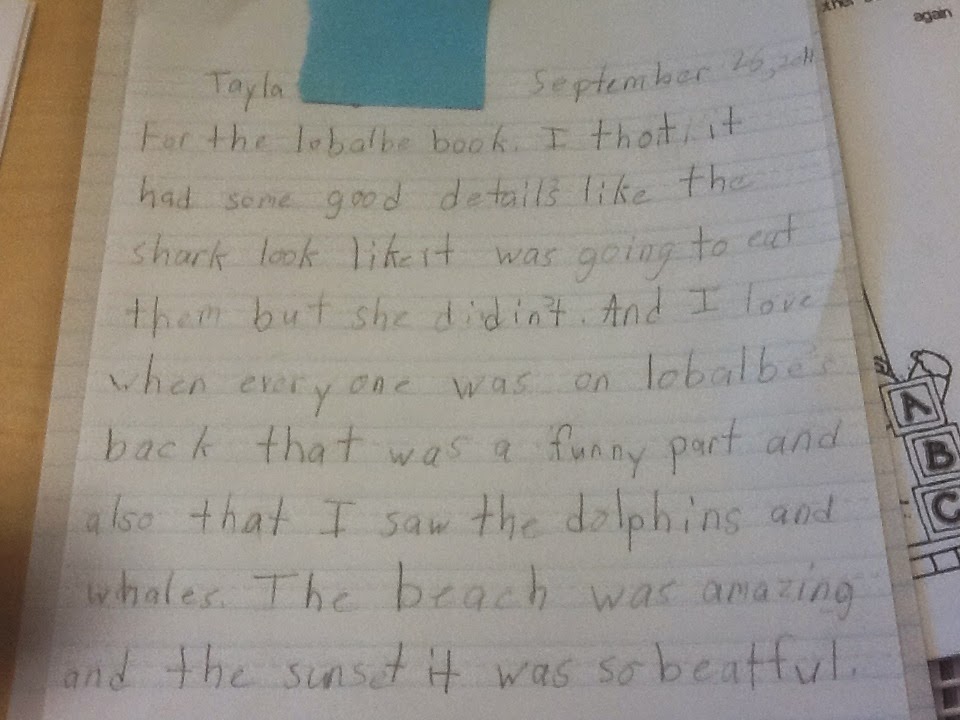 again
Tayla September 26, 2011
For the lobalbe book. I thoti it
had some good details like the
shark look like it was going to eat
them but she didin't. And I love
when every one was on lobalbe's
back that was a funny part and
also that I saw the dolphins and
whales. The beach was amazing
and the sunset it was so beatful.
A
B
C